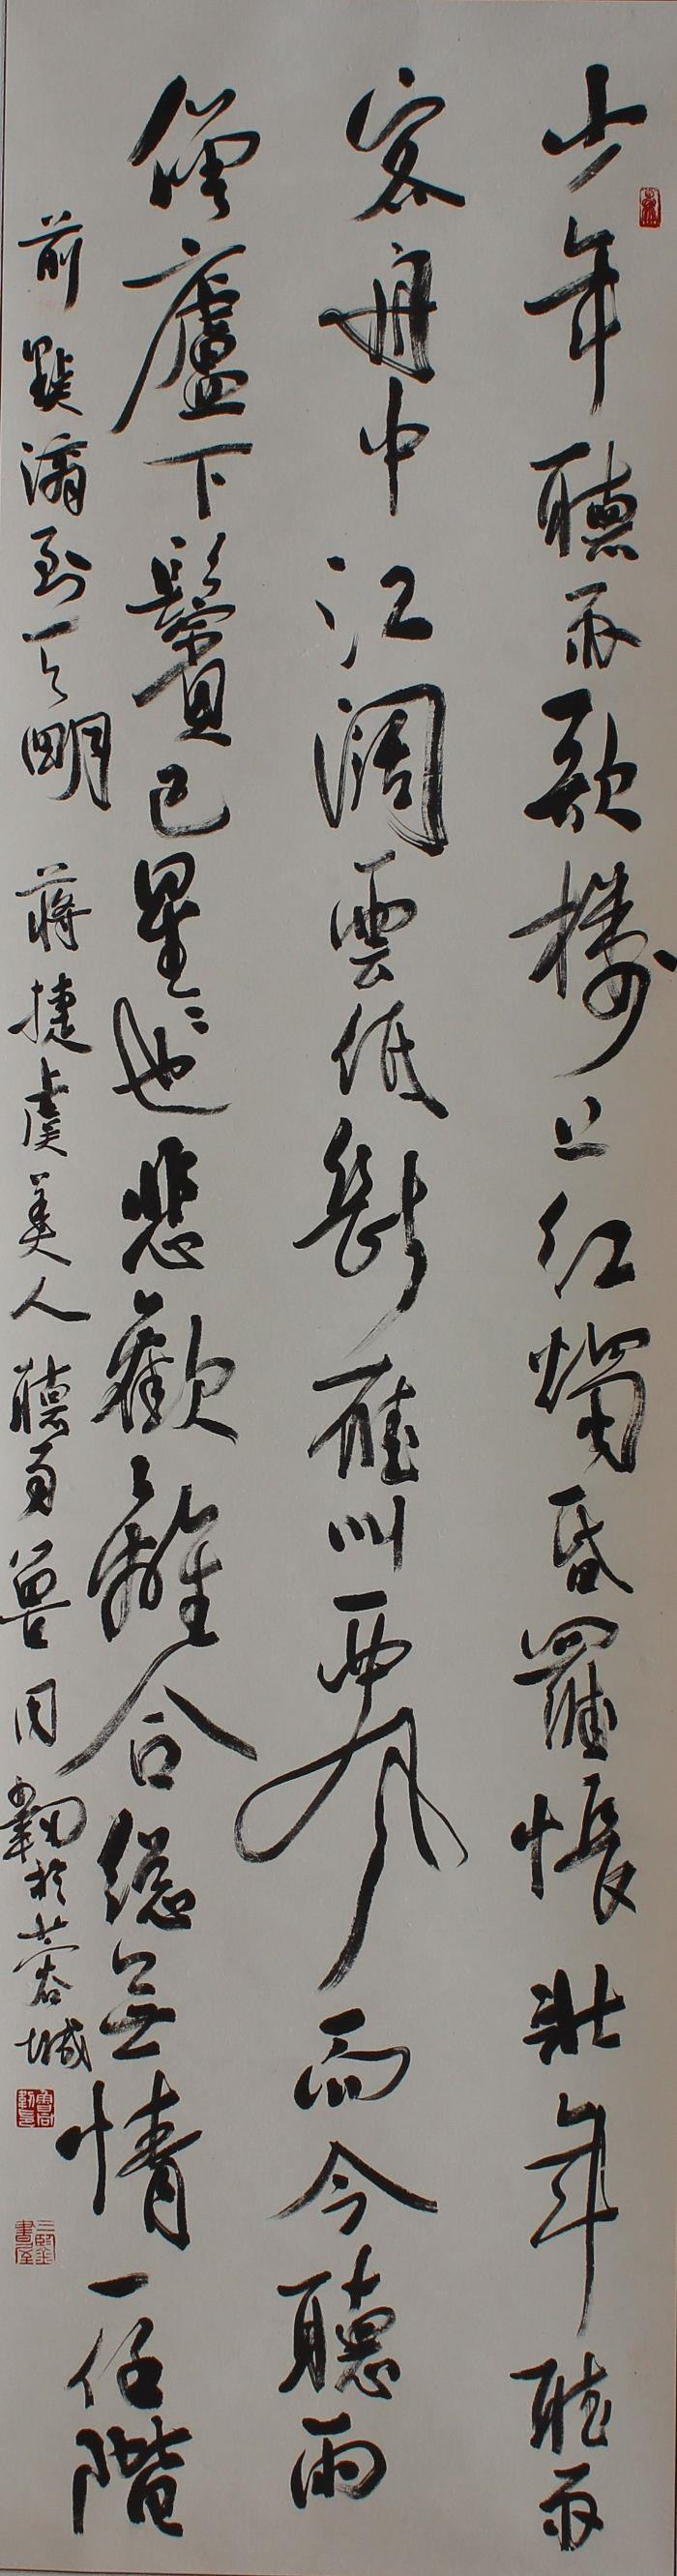 少年聽雨歌樓上紅燭昏羅帳壯年聽雨
客舟中江闊雲低斷雁叫西風而今聽雨
僧廬下鬢已星星也悲歡離合總無情一任階
前點滴到天明 蔣捷虞美人聽雨 魯同韌於蓉城
三賢書屋